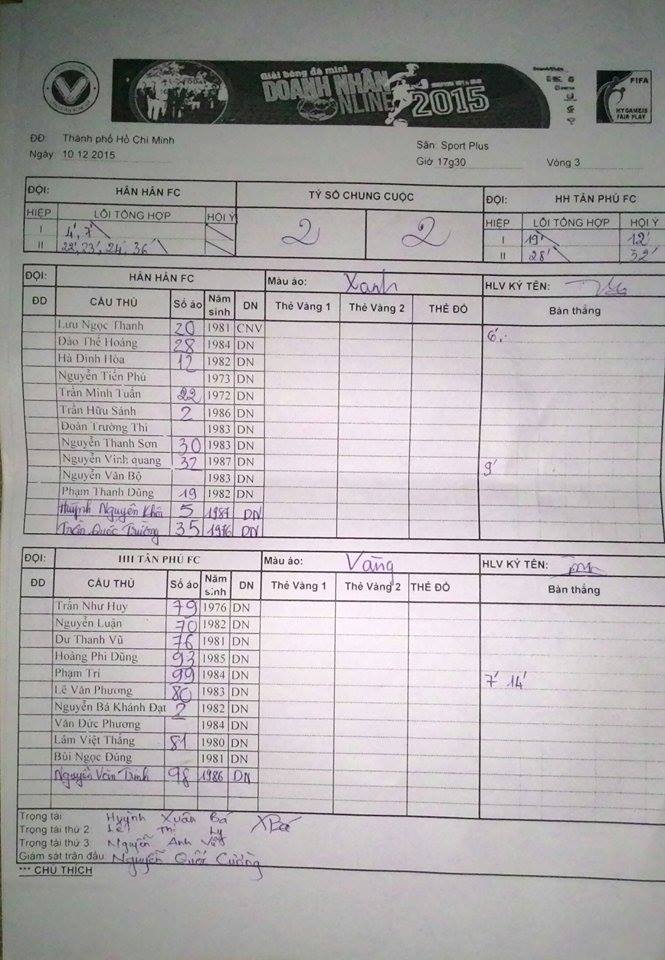 Giải bóng đá mini
DOANH NHÂN
ONLINE
2015
FIFA
MY GAME IS
FAIR PLAY
ĐĐ: Thành phố Hồ Chí Minh
Ngày 10.12.2015
Sân: Sport Plus
Giờ 17g30 Vòng 3
ĐỘI: HÂN HÂN FC TỶ SỐ CHUNG CUỘC ĐỘI: HH TÂN PHÚ FC
HIỆP LỖI TỔNG HỢP HỘI Ý 2 2 HIỆP LỖI TỔNG HỢP HỘI Ý
I 4', 7' I 19' 12'
II 22', 23', 24', 36' II 28' 32'
ĐỘI: HÂN HÂN FC Màu áo: Xanh HLV KÝ TÊN:
ĐD CẦU THỦ Số áo Năm sinh DN Thẻ Vàng 1 Thẻ Vàng 2 THẺ ĐỎ Bàn thắng
Lưu Ngọc Thanh 20 1981 CNV 6'
Đào Thế Hoàng 28 1984 DN
Hà Đình Hòa 12 1982 DN
Nguyễn Tiến Phú 1973 DN
Trần Minh Tuấn 22 1972 DN
Trần Hữu Sánh 2 1986 DN
Đoàn Trường Thi 1983 DN
Nguyễn Thanh Sơn 30 1983 DN
Nguyễn Vinh quang 32 1987 DN 9'
Nguyễn Văn Bộ 1983 DN
Phạm Thanh Dũng 19 1982 DN
Huỳnh Nguyên Khôi 5 1987 DN
Trần Quốc Trường 35 1976 DN
ĐỘI: HH TÂN PHÚ FC Màu áo: Vàng HLV KÝ TÊN:
ĐD CẦU THỦ Số áo Năm sinh DN Thẻ Vàng 1 Thẻ Vàng 2 THẺ ĐỎ Bàn thắng
Trần Như Huy 79 1976 DN
Nguyễn Luận 70 1982 DN
Dư Thanh Vũ 76 1981 DN
Hoàng Phi Dũng 93 1985 DN
Phạm Trí 99 1984 DN 7' 14'
Lê Văn Phương 80 1983 DN
Nguyễn Bá Khánh Đạt 2 1982 DN
Văn Đức Phương 1984 DN
Lâm Việt Thắng 81 1980 DN
Bùi Ngọc Đúng 1981 DN
Nguyễn Văn 98 1986 DN
Trọng tài: Huỳnh Xuân Bá XBá
Trọng tài thứ 2: Lê Thị Ly
Trọng tài thứ 3: Nguyễn Anh
Giám sát trận đấu: Nguyễn Quốc Cường
*** CHÚ THÍCH